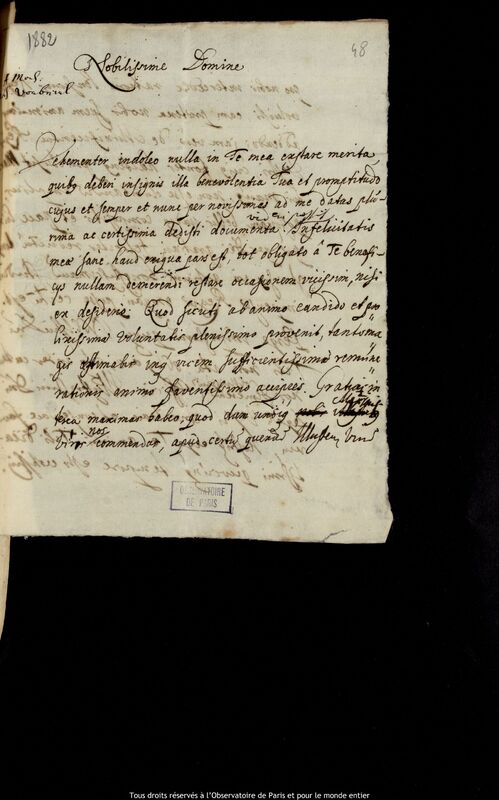 1882
48
Nobilissime Domine
Vehementer indoleo nulla in Te mea exstare merita
quibq deberi insignis illa benevolentia Tua et promptitudo
cujus et semper et nunc per novissimas ad me datas plu-
rima ac certissima dedisti documenta. Infelicitatis
meæ sane haud exigua pars est, tot obligato â Te benefi-
cijs nullam demerendi restare occasionem vicissim, nisi
ex desiderio. Quod sicuti ab animo candido et pro
linissima voluntatis plenissimo provenit, tanto ma
gis æstimabis inq vicem sufficientissimæ remune
rationis animo faventissimo accipies. Gratias in
terea maximas habeo, quod dum undiq
Viris nos commendas, apud certu quendã Illustem Viru
OBSERVATOIRE
DE PARIS
Tous droits réservés à l'Observatoire de Paris et pour le monde entier